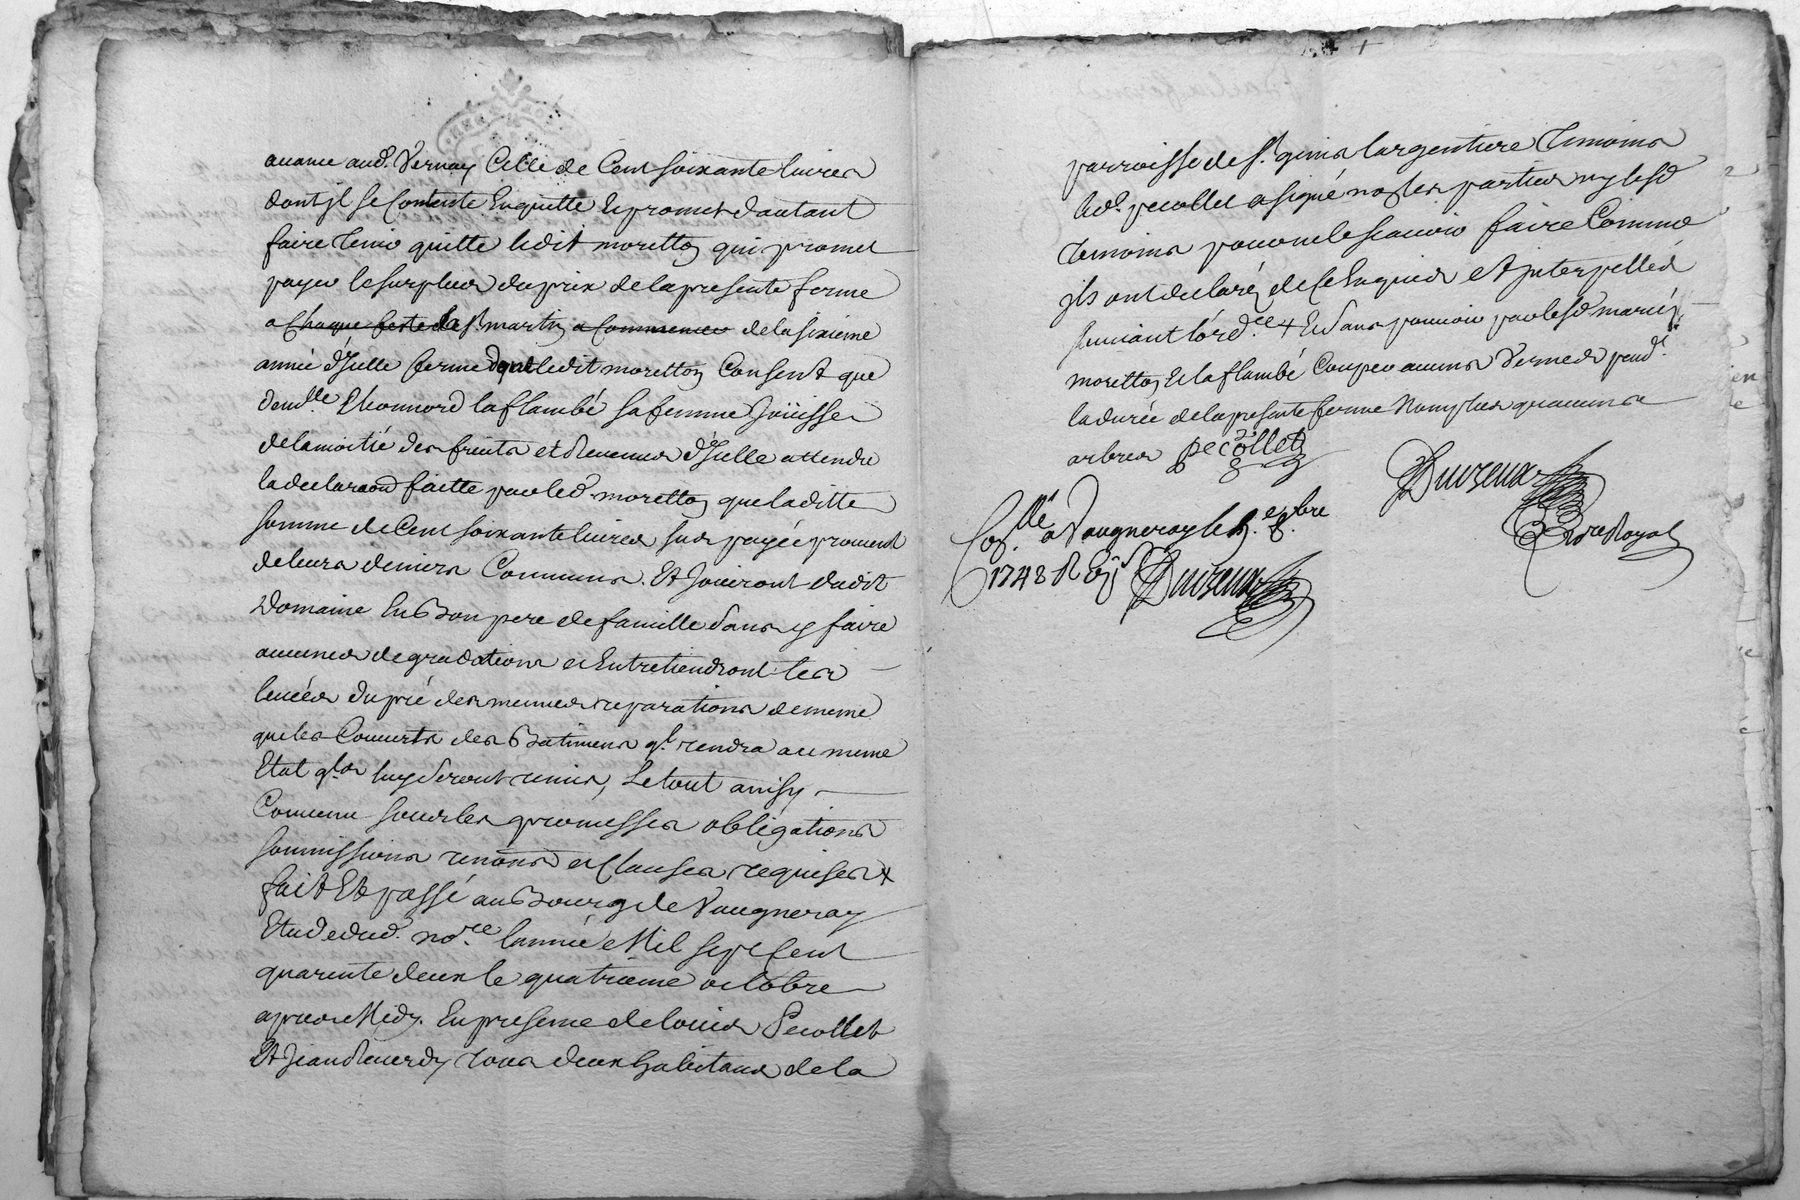 avance aud. Vernay Celle de Cent soixante livres
dont jl se Contente Enquitte Et promet d'autant
faire tenir quitte ledit moretton qui promet
payer le surplus du prix de la presente ferme
a Chaque feste de la St. martin a Commencer de la sixieme
année d'Jcelle ferme dont ledit moretton Consent que
demlle Ehonnord laflambé sa femme Joüisse
de la moitié des fruits et Revenus d'Jcelle attendu
la declaraon faitte par led. moretton que laditte
somme de Cent soixante livres sus payée provient
de leurs deniers Communs. Et Joüiront dudit
Domaine En Bon pere de famille sans y faire
aucunes degradations et Entretiendront les
du pré des menues reparations de meme
que les Couverts des Batimens ql. rendra au meme
Etat qls luy seront remis, Le tout ainsy
Convenu sous les promesses obligations
soumissions renons et Clauses requises +
fait Et passé au Bourg de Vaugneray
Etude dud. nore. l'année Mil sept Cent
quarente deux le quatrieme octobre
apres Midy. En presence de louis Pecollet
Et Jean tous deux habitans de la
parroisse de St. genis l'argentiere temoins
led. pecollet a signé non les parties ny lesd
temoins pour ne le scavoir faire Comme
jls ont declaré de ce Enquis et Jnterpellés
suivant l'ord.ce + Et sans pouvoir par lesd mariés
moretton Et laflambé Couper aucuns Vernes pendt.
la durée de la presente ferme Non plus qu'aucuns
arbres pecollet
Duizeux
Nore Royal
Conllé a Vaugneray le 9. 8.bre
1742 R
Duizeux